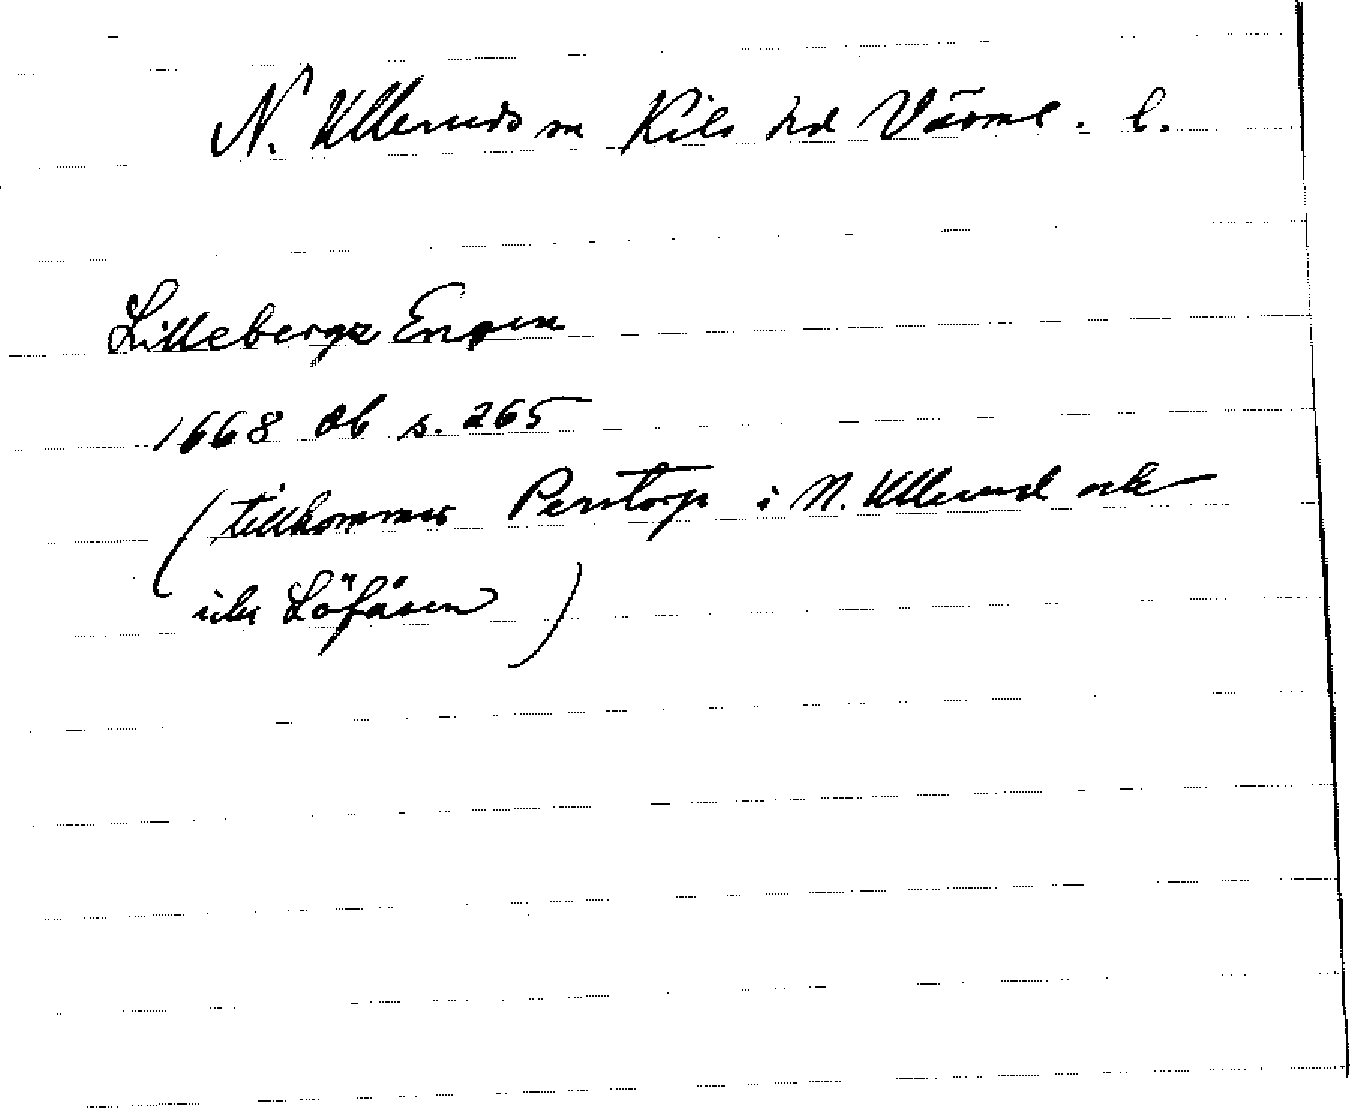 N. Ulleruds sn Kils hd Värml. l.
Lillebergz Engen
1668 Jb s. 265
(tillkommer Perstorp i N. Ullerud och
icke Löfåsen)